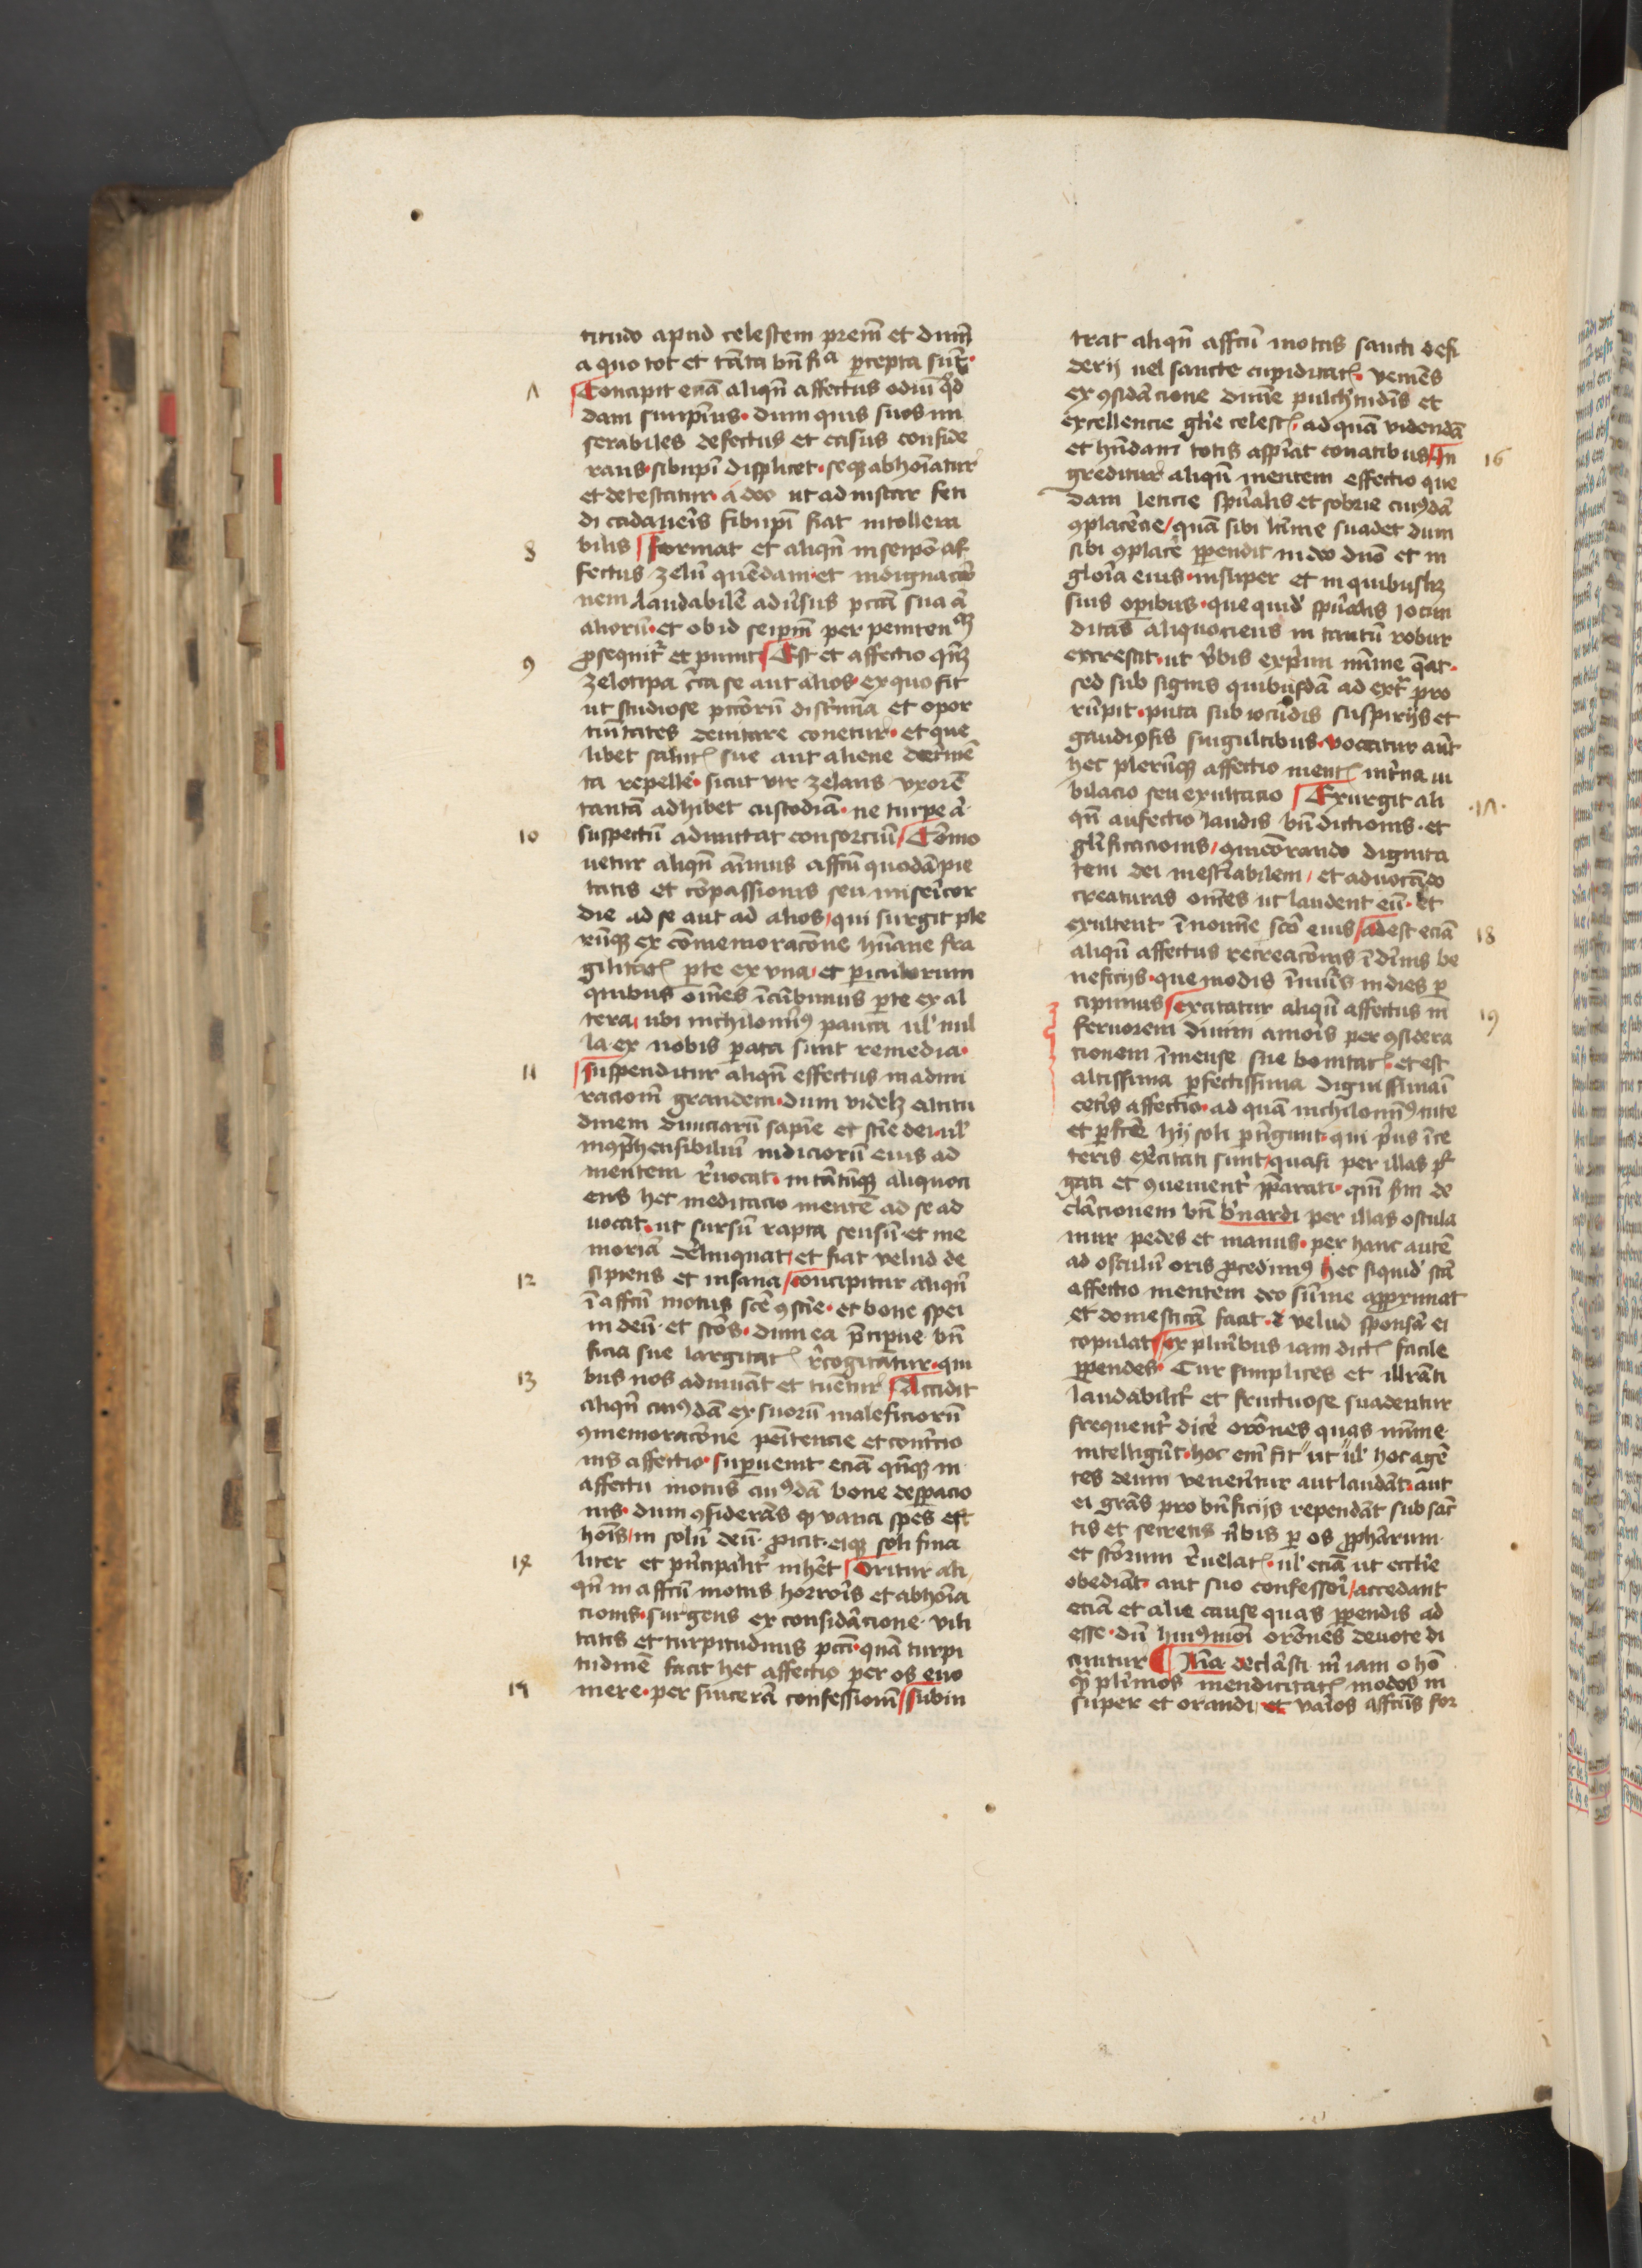 titudo apud celestem prem̄ et dum̄
a quo tot et tāta bn̄fiᵃ p̄cepta sūt·
7 Concipit eciā aliqn̄ affectus odiū q̄d
dam suiipīus· dum quis suos mi
serabiles defectus et casus conside
rans· sibiipī displicet· seqꝫ abhoīatur
et detestatur· adeo ut ad instar feti
di cadaueris sibiipī fiat intollera
8 bilis Format et aliqn̄ in seipō af
fectus zelū quēdam· et indignacio
nem laudabilē adūsus pctā sua a᷑
aliorū· et ob id seipm̄ per peniten
9 ꝓsequit᷑ et punit Est et affectio qn̄ꝫ
zelotipa c̄ca se aut alios· ex quo fit
ut studiose pctōrū discrīmina et opor
tunitates deuitare conetur· et que
libet salutꝭ sue aut aliene detrimē
ta repelle᷑· sicut vir zelans vxorē
tantā adhibet custodiā· ne turpe a᷑
10 suspectū admittat consorciū Cōmo
uetur aliqn̄ aīmus affcū quodā pie
tatis et cōpassionis seu miserīcor
die ad se aut ad alios/ qui surgit ple
rūqꝫ ex cōmemoracōne hūane fra
gilitatꝭ p̄te ex vna/ et periculorum
quibus om̄es īcūbimus p̄te ex al
tera/ ubi nichilomīꝰ pauca ul᷑ nul
la ex nobis parata sunt remedia·
11 Suspenditur aliqn̄ effectus in admi
racionē grandem· dum videlꝫ altitu
dinem diuiciarū sapīe et sciē dei· ul᷑
incōp̄hensibiliū iudiciorū eius ad
mentem r̄uocat· in tātūqꝫ aliquoci
ens hec meditacio mentē ad se ad
uocat· ut sursū rapta sensū· et me
moriā delinquat/ et fiat velud de
12 sipiens et insana/ Concipitur aliqn̄
ī affcū motus scē ꝯsciē· et bone spei
in deū· et scōs· dum ea p̄cipue bn̄
ficia sue largitatꝭ r̄cogitatur· qui
13 bus nos adiuuāt et tuentur Accidit
aliqn̄ cuiꝰdā ex suorū maleficiorū
ꝯmemoracōne penitencie et contricio
nis affectio· Superuenit eciā qn̄qꝫ in
affectu motus cuiꝰdā bone despacio
nis· dum ꝯsiderās qꝫ vana spes est
hoīs/ in solū deū· ꝓicit· eiqꝫ soli fina
14 liter et pn̄cipalit᷑ inhēt Oritur ali
qn̄ in affcū motus horroris et abhoīa
cionis· surgens ex considācione· vili
tatis et turpitudinis pcti· quā turpi
tudinē facit hec affectio per os euo
15 mere· per sincerā confessionē/ Subin
trat aliqn̄ affcū motus sancti desi
derij uel sancte cupiditatꝭ· veniēs
ex ꝯsidācione diuine pulchritudinis et
excellencie glīe celestꝭ· ad quā videndā
16 et hn̄dam totis aspirat conatibus/ In
greditur aliqn̄ mentem effectio que
dam leticie spūalis et sobrie cuiꝰdā
ꝯplacēcie/ quā sibi līttme suadet dum
sibi ꝯplacē ꝑpendit in deo duō et in
gloria eius· insuper et in quibuslꝫ
suis operibus· que quid᷑ spūalis iocun
ditas aliquociens in tantū robur
excrescit· ut v̄bis exprimi mīme q̄at·
sed sub signis quibusdā ad ext᷑ pro
rūpit· puta sub iocūdis suspirijs et
gaudiosis singultibus· vocatur aūt
hec plerūqꝫ affectio mentꝭ int̄na iu
17 bilacio seu exultacio Exurgit ali
qn̄ aufectio laudis bn̄dictionis· et
glīficacionis/ qui cōrando dignita
tem dei inestīabilem/ et aduocādo
creaturas om̄es ut laudent eū· et
18 exultent ī nomīe scō eius/ Adest eciā
aliqn̄ affectus recreacōnis ī dīnis be
neficijs· que modis īnuīs in dies p̄
19 cipimus Excitatur aliqn̄ affectus in
feruorem diuini amoris per ꝯsidera
cionem īmense sue bonitatꝭ· et est
altissima perfectissima dignissima ī
cetīs affectio· ad quā nichilomīꝰ tute
et perfcē hij soli p̄tingunt· qui pīus ī ce
teris exercitati sunt/ quasi per illas pur
gati et ꝯuenient᷑ p̄parati· qm̄ scdm de
clacionem bn̄ b᷑nardi per illas oscula
mur pedes et manus· per hanc autē
ad osculū oris ꝓcedimꝰ Hec siquid᷑ scā
affectio mentem deo sūme approximat
et domesticā facit· et velud sponsā ei
copulat Ex plurībus iam dictꝭ facile
ꝑpendes· Cur simplices et illrāti
laudabilit᷑ et fructuose suadentur
frequent᷑ dicē orōnes quas mīme
intelligūt· hoc em̄ fit ut ul᷑ hoc agē
tes deum venerentur aut laudāt· aut
ei grās pro bn̄ficijs rependāt sub sac̄
tis et secretis v̄bis per os ꝓphārum·
et scōrum r̄uelatꝭ· ul᷑ eciā ut ecclīe
obediāt· aut suo confessori/ accedant
eciā et alie cause quas ꝑpendis ad
esse· dū huiꝰmoī orōnes deuote di
cuntur ¶ Aīa declāsti m̄ iam o hō
q̄ plīmos mendicitatꝭ modos in
super et orandi· et varios affcūs for